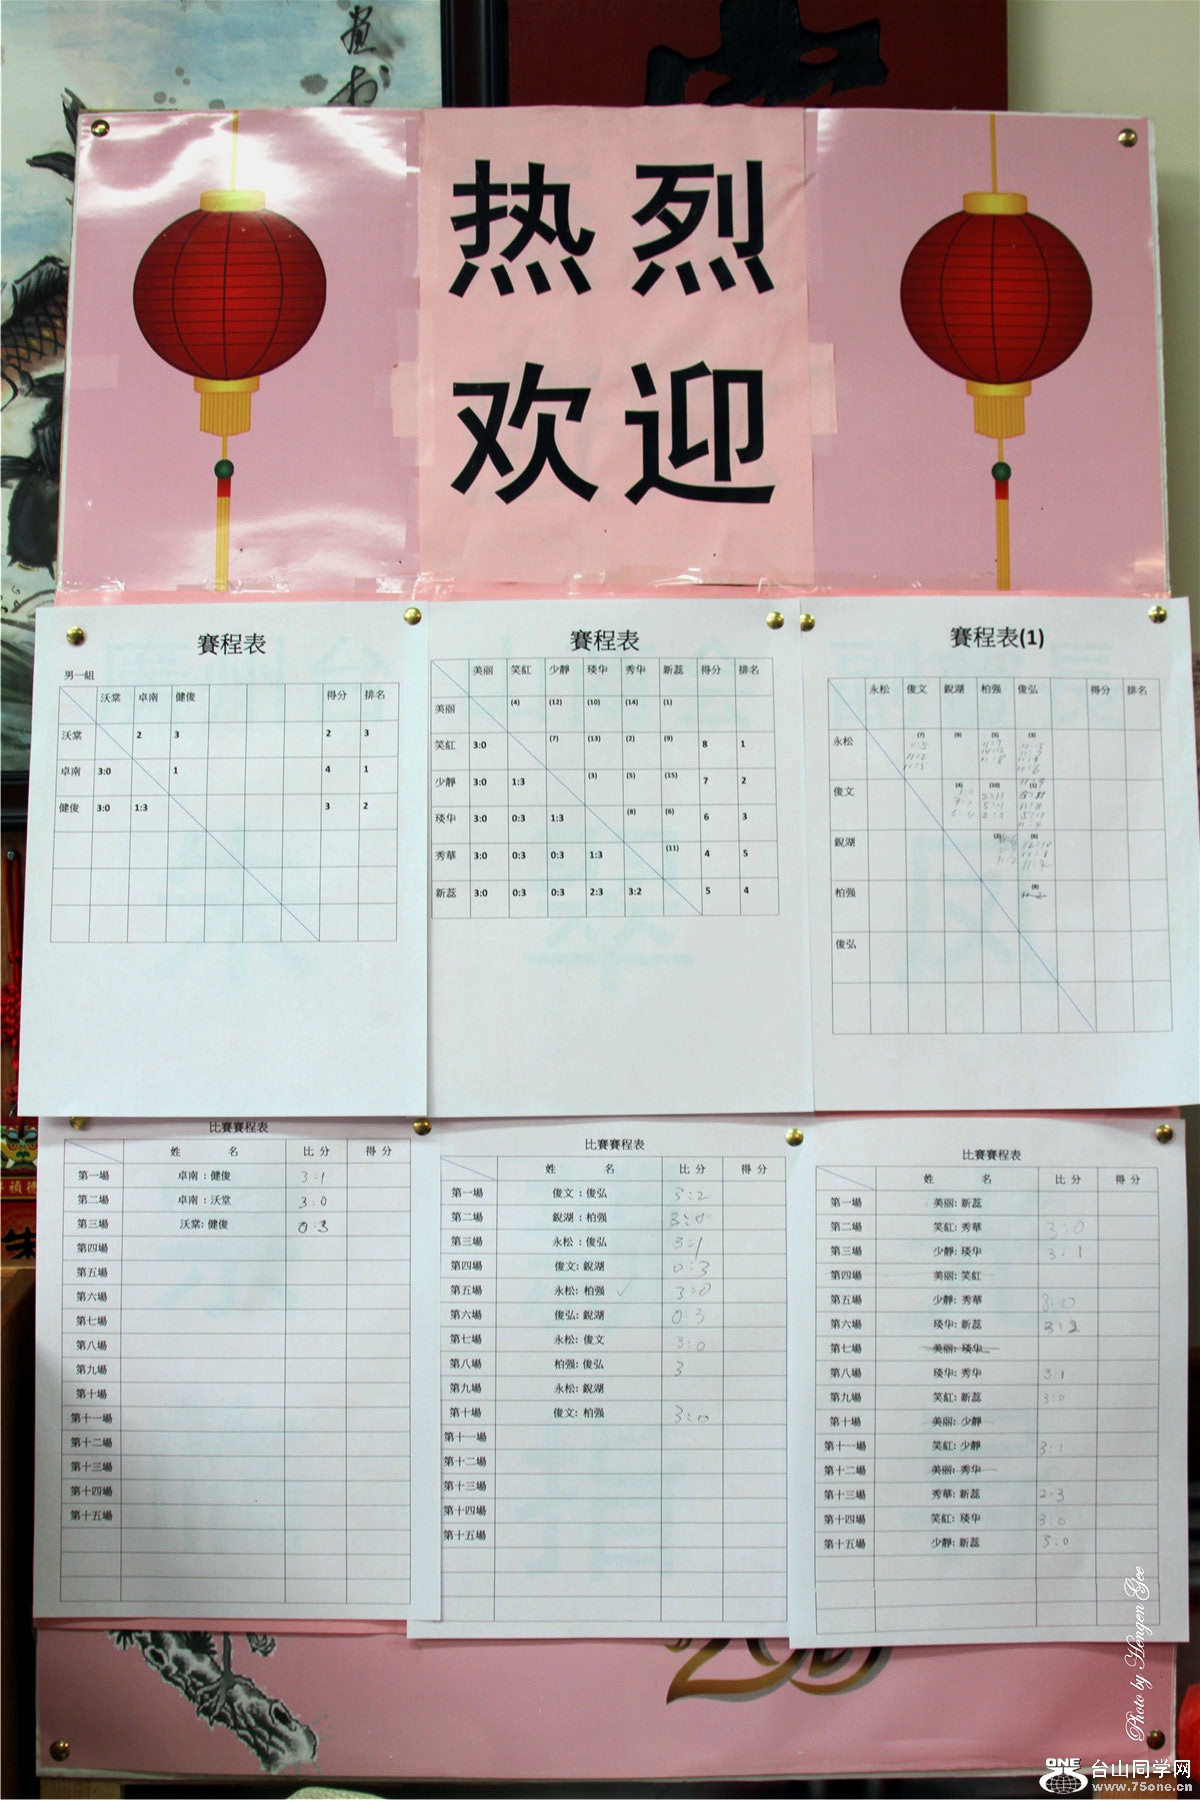 画於
热烈
欢迎
賽程表
男一組
沃棠 卓南 健俊 得分 排名
沃棠 2 3 2 3
卓南 3:0 1 4 1
健俊 3:0 1:3 3 2
賽程表
美丽 笑紅 少靜 琰华 秀华 新蕊 得分 排名
美丽 (4) (12) (10) (14) (1)
笑紅 3:0 (7) (13) (2) (9) 8 1
少靜 3:0 1:3 (3) (5) (15) 7 2
琰华 3:0 0:3 1:3 (8) (6) 6 3
秀華 3:0 0:3 0:3 1:3 (11) 4 5
新蕊 3:0 0:3 0:3 2:3 3:2 5 4
賽程表(1)
永松 俊文 銳湖 柏强 俊弘 得分 排名
永松 (7) (9) (5) (3)
俊文 (4) (10) (1)
銳湖 (2) (6)
柏强 (8)
俊弘
比賽賽程表
姓 名 比分 得分
第一場 卓南：健俊 3:1
第二場 卓南：沃堂 3:0
第三場 沃棠: 健俊 0:3
第四場
第五場
第六場
第七場
第八場
第九場
第十場
第十一場
第十二場
第十三場
第十四場
第十五場
比賽賽程表
姓 名 比分 得分
第一場 俊文：俊弘 3:2
第二場 銳湖：柏强 3:0
第三場 永松：俊弘 3:1
第四場 俊文: 銳湖 0:3
第五場 永松: 柏强 ✓ 3:0
第六場 俊弘: 銳湖 0:3
第七場 永松: 俊文 3:0
第八場 柏强: 俊弘 3
第九場 永松: 銳湖
第十場 俊文: 柏强 3:0
第十一場
第十二場
第十三場
第十四場
第十五場
比賽賽程表
姓 名 比分 得分
第一場 美丽: 新蕊
第二場 笑紅: 秀華 3:0
第三場 少靜: 琰华 3:1
第四場 美丽: 笑紅
第五場 少靜: 秀華 3:0
第六場 琰华: 新蕊 3:2
第七場 美丽: 琰华
第八場 琰华: 秀华 3:1
第九場 笑紅: 新蕊 3:0
第十場 美丽: 少靜
第十一場 笑紅: 少靜 3:1
第十二場 美丽: 秀华
第十三場 秀華: 新蕊 2:3
第十四場 笑紅: 琰华 3:0
第十五場 少靜: 新蕊 3:0
Photo by Hengen Gee
ONE 台山同学网
www.75one.cn